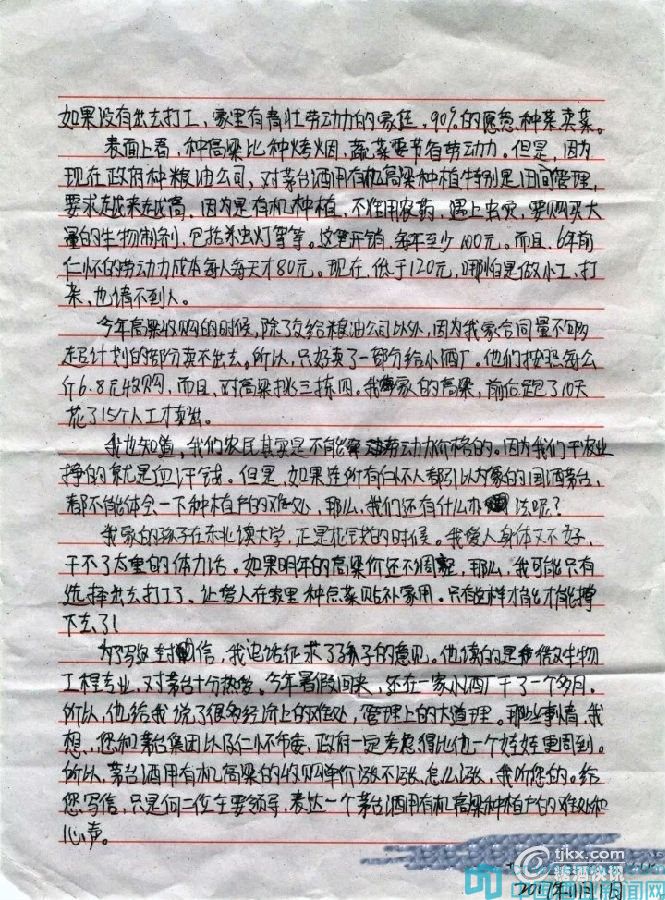 如果没有出去打工，家里有青壮劳动力的家庭，90%的愿意种菜卖菜。
表面上看，种高粱比种烤烟，蔬菜要节省劳动力。但是，因为
现在政府种粮油公司，对茅台酒用有机高粱种植特别是田间管理，
要求越来越高。因为是有机种植，不准用农药，遇上虫灾，要购买大
量的生物制剂，包括杀虫灯等等。这笔开销，每年至少100元。而且，6年前
仁怀的劳动力成本每人每天才80元。现在，低于120元，哪怕是做小工，打
杂，也请不到人。
今年高粱收购的时候，除了交给粮油公司以外，因为我家合同量不够
超计划的部分卖不出去。所以，只好卖了一部分给小酒厂。他们按照每公
斤6.8元收购，而且，对高粱挑三拣四。我家的高粱，前后跑了10天
花了15个人工才卖出。
我也知道，我们农民其实是不能算劳动力价格的。因为我们干农业
挣的就是血汗钱。但是，如果连所有仁怀人都引以为豪的国酒茅台，
都不能体会一下种植户的难处，那么，我们还有什么办法呢？
我家的孩子在东北读大学，正是花钱的时候。我爱人身体又不好，
干不了太重的体力活。如果明年的高粱价还不调整，那么，我可能只有
选择出去打工了，让爱人在家里种点菜贴补家用。只有这样才能才能撑
下去了！
为了写这封信，我电话征求了孩子的意见。他读的是微生物
工程专业，对茅台十分热爱。今年暑假回来，还在一家小酒厂干了一个多月。
所以，他给我说了很多经济上的难处，管理上的大道理。那些事情，我
想，您和茅台集团以及仁怀市委，政府一定考虑得比他一个娃娃更周到。
所以，茅台酒用有机高粱的收购单价涨不涨，怎么涨，我听您的。给
您写信，只是向二位主要领导，表达一个茅台酒用有机高粱种植户的难处和
心声。
tjkx.com
糖酒快讯
2017年11月1日
中国酒业新闻网